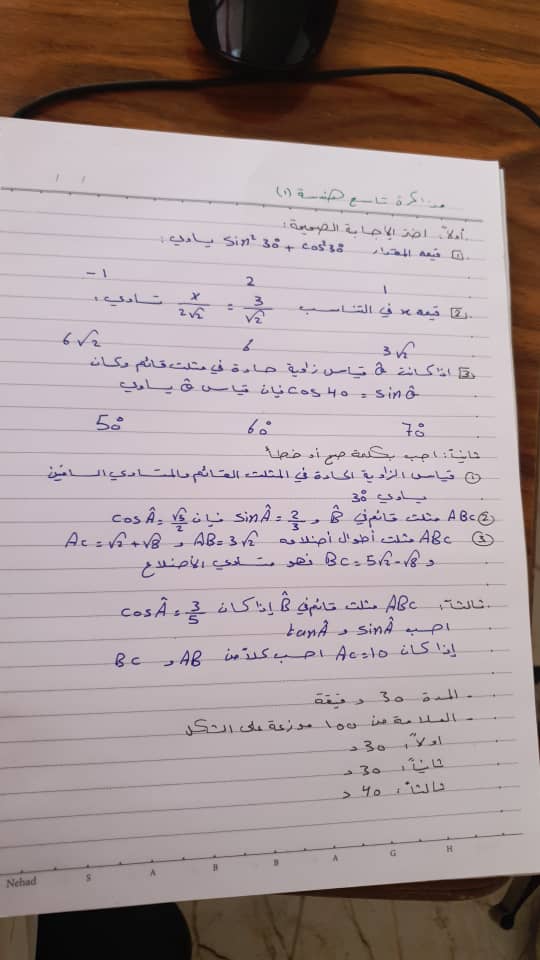 مذاكرة تاسع هندسة (١)
أولاً: اختر الإجابة الصحيحة:
1 قيمة المقدار sin² 30° + cos² 30° يساوي:
1 2 -1
2 قيمة x في التناسب 3/√2 = x/2√2 تساوي:
3√2 6 6√2
3 إذا كانت θ̂ قياس زاوية حادة في مثلث قائم وكان
cos 40 = sin θ̂ فإن قياس θ̂ يساوي
70° 60° 50°
ثانياً: اجب بكلمة صح أو خطأ
① قياس الزاوية الحادة في المثلث القائم والمتساوي الساقين
يساوي 30°
② ABC مثلث قائم في B̂ و sin Â = 2/3 فإن cos Â = √5/2
③ ABC مثلث أطوال أضلاعه AB = 3√2 و AC = √2 + √8
و BC = 5√2 - √8 فهو متساوي الأضلاع
ثالثاً: ABC مثلث قائم في B̂ إذا كان cos Â = 3/5
احسب sin Â و tan Â
إذا كان AC = 10 احسب كلاً من AB و BC
- المدة 30 دقيقة
- العلامة من 100 موزعة على الشكل
أولاً: 30 د
ثانياً: 30 د
ثالثاً: 40 د
Nehad S A R B A G H